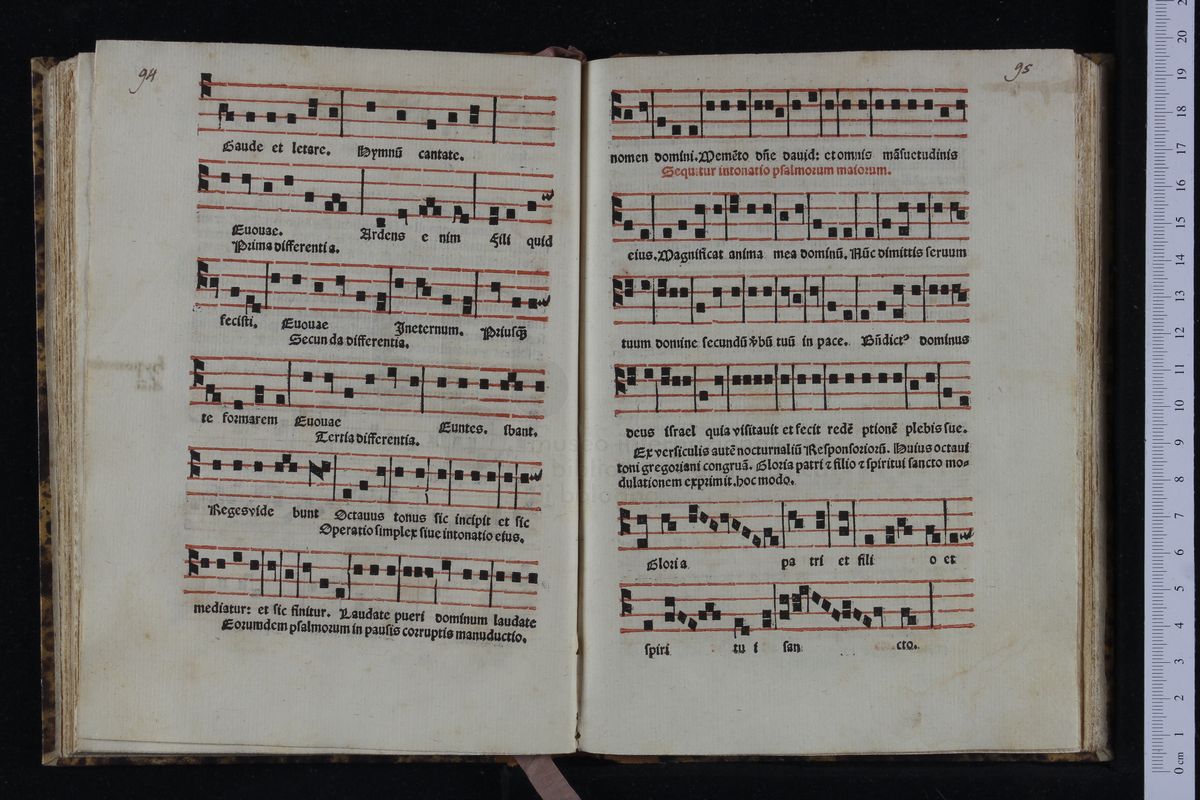 94
Gaude et letare. Hymnū cantate.
Euouae. Ardens e nim Fili quid
Prima differentia.
fecisti. Euouae Ineternum. Priusq̄
Secunda differentia.
te formarem Euouae Euntes. ibant.
Tertia differentia.
Reges vide bunt Octauus tonus sic incipit et sic
Operatio simplex siue intonatio eius.
mediatur: et sic finitur. Laudate pueri dominum laudate
Eorumdem psalmorum in pausis corruptis manuductio.
95
nomen domini. Memēto dñe dauid: et omnis māsuetudinis
Sequitur intonatio psalmorum maiorum.
eius. Magnificat anima mea dominū. Nūc dimittis seruum
tuum domine secundū v̄bū tuū in pace. Bñdictꝰ dominus
deus israel quia visitauit et fecit redē ptionē plebis sue.
Ex versiculis autē nocturnaliū Responsoriorū. Huius octaui
toni gregoriani congruā. Gloria patri ⁊ filio ⁊ spiritui sancto mo-
dulationem exprimit. hoc modo.
Gloria pa tri et fili o et
spiri tu i san cto.
20
19
18
17
16
15
14
13
12
11
10
9
8
7
6
5
4
3
2
1
0 cm